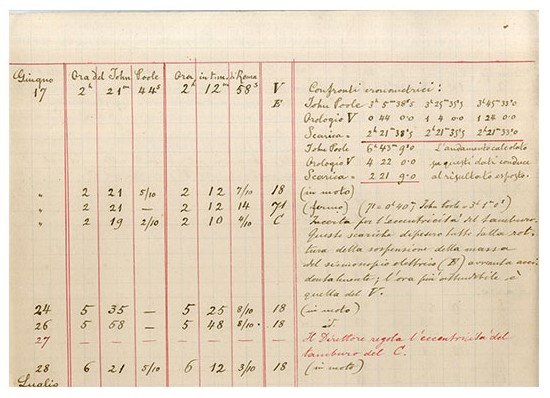 Giugno Ora del John Poole Ora in t.m. di Roma
17 2h 21m 44s 2h 12m 58s V Confronti cronometrici:
E John Poole 3h 5m 38s5 3h 25m 35s5 3h 45m 33s0
Orologio V 0 44 0.0 1 4 0.0 1 24 0.0
Scarica " 2h 21m 38s5 2h 21m 35s5 2h 21m 33s0
John Poole 6h 43m 9s0 L'andamento calcolato
Orologio V 4 22 0.0 su questi dati conduce
Scarica " 2 21 9.0 al risultato esposto.
" 2 21 5/10 2 12 7/10 18 (in moto)
" 2 21 — 2 12 14 71 (fermo) (71 = 0h 40m John Poole = 3h 1m 0s)
" 2 19 2/10 2 10 4/10 C Incerta per l'eccentricità del tamburo.
Queste scariche dipesero tutte dalla rot-
tura della sospensione della massa
del sismoscopio elettrico (E) avvenuta acci-
dentalmente; l'ora più attendibile è
quella del V.
24 5 35 — 5 25 8/10 18 (in moto)
26 5 58 — 5 48 8/10 18 id
27 — — — Il Direttore regola l'eccentricità del
tamburo del C.
28 6 21 5/10 6 12 3/10 18 (in moto)
Luglio